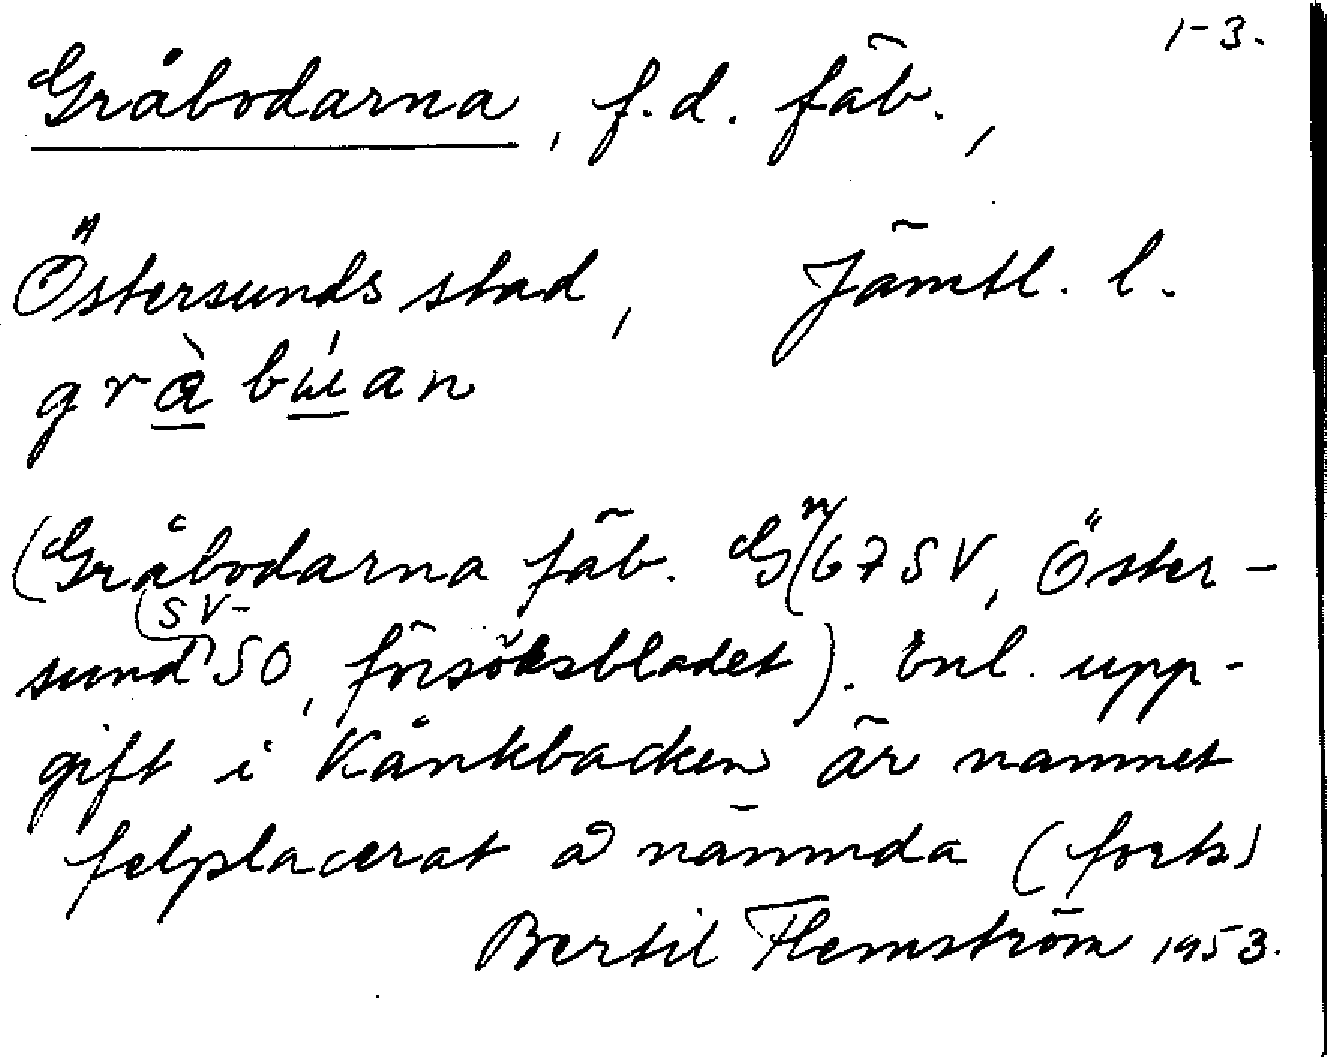 1-3.
Gråbodarna, f.d. fäb.,
Östersunds stad, Jämtl. l.
(Gråbodarna fäb. Gn/67SV, Öster-
SV-
sund SO, försöksbladet). Enl. upp-
gift i Kånkbacken är namnet
felplacerat å nämnda (forts)
Bertil Flemström 1953.